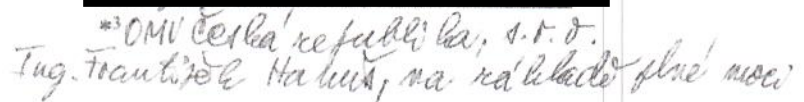 *3 OMV Česká republika, s.r.o.
Ing. František Hanuš, na základě plné moci